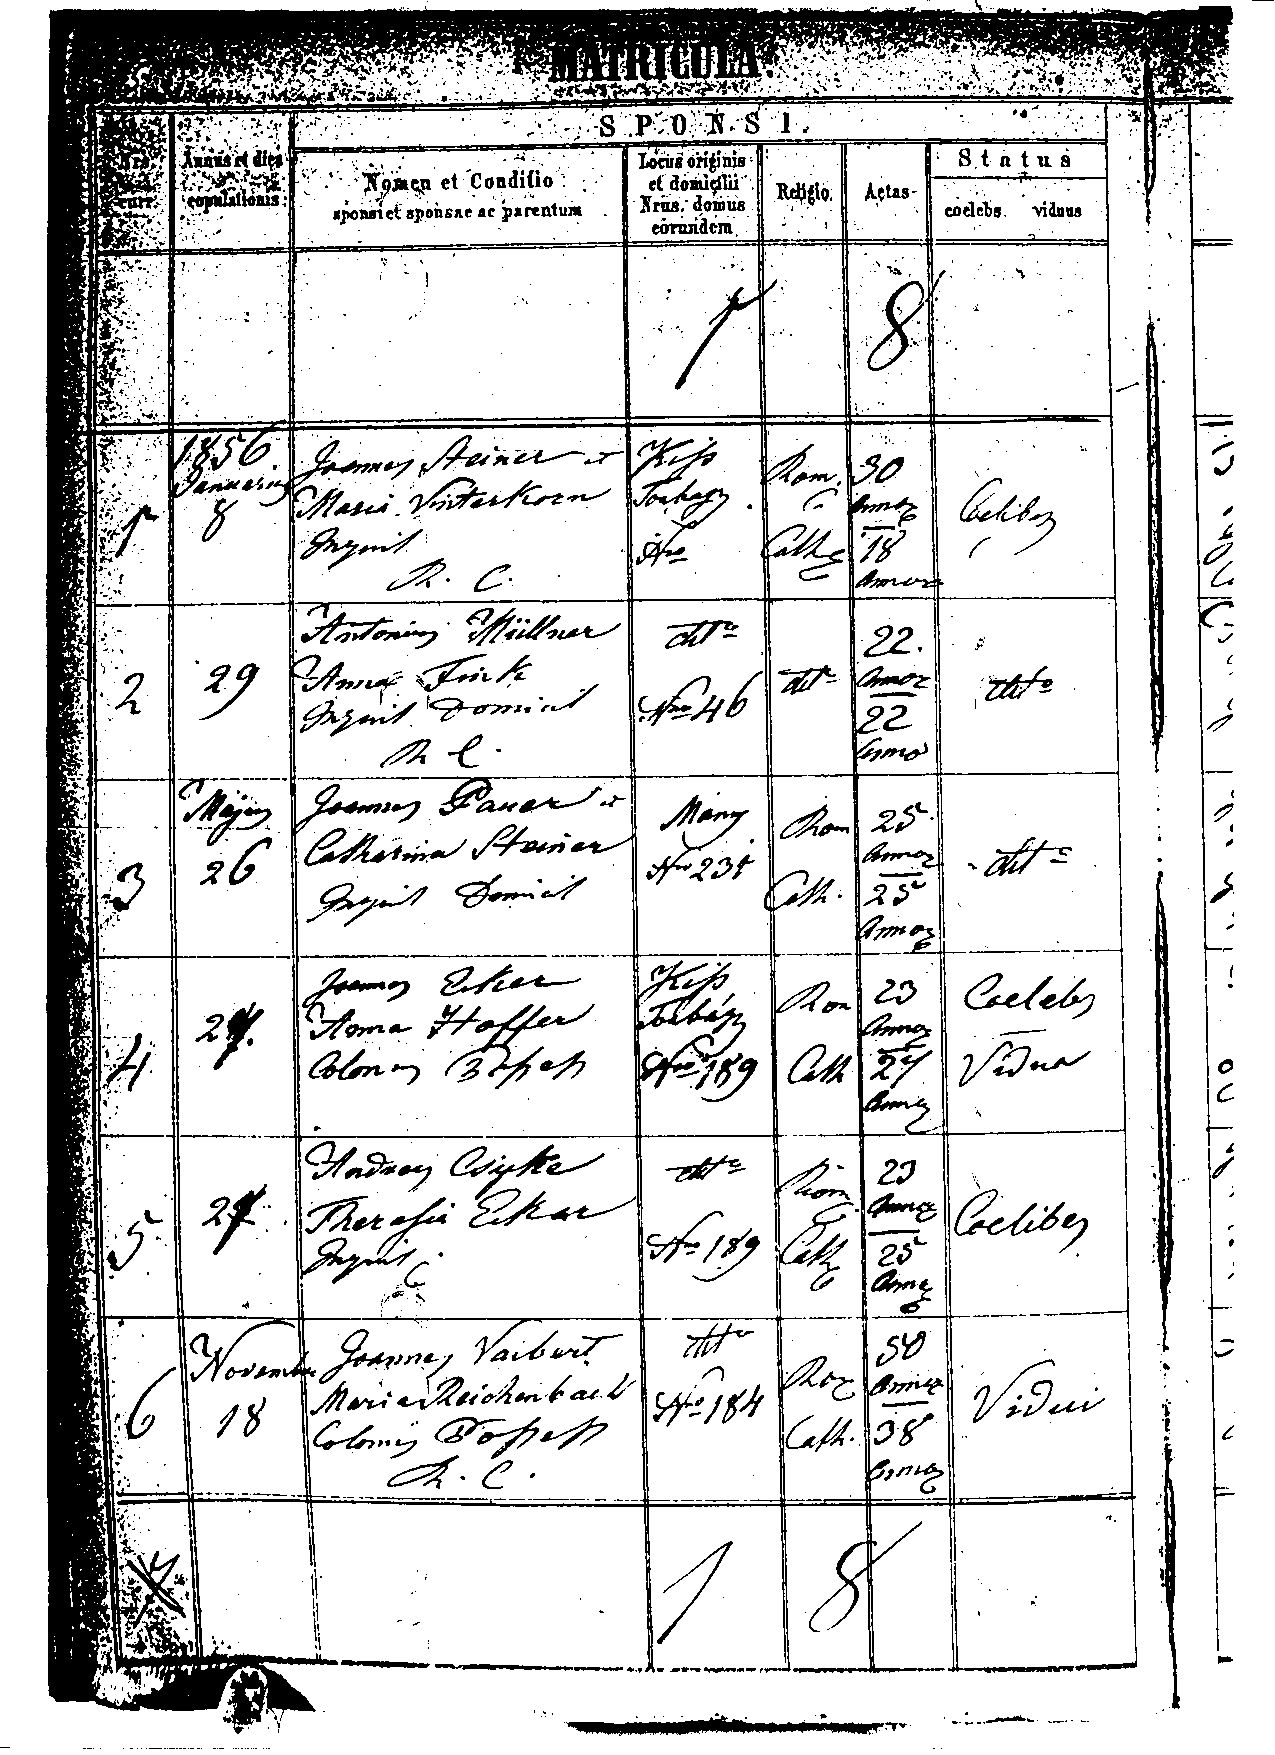 MATRICULA.
SPONSI.
Nrs. curr.
Annus et dies copulationis:
Nomen et Conditio
sponsi et sponsae ac parentum
Locus originis
et domicilii
Nrus. domus
eorundem
Religio.
Aetas
Status
coelebs. viduus
1 8
1
1856
Januarius
8
Joannes Steiner et
Maria Vinterkorn
Inquil
R. C.
Kiss
Torbágy
Nro
Rom.
Cath
30
Annor
18
Annor
Coelibes
2
29
Antonius Müllner
Anna Fink
Inquil Domicil
R C.
ditto
Nro 46
ditto
22.
Annor
22
Anno
ditto
3
Majus
26
Joannes Pauer et
Catharina Steiner
Inquil Domicil
Mány
Nro 231
Rom
Cath.
25
Annor
25
Annor
ditto
4
27.
Joannes Eker
Anna Hoffer
Colonus
Kiss
Torbágy
Nro 189
Rom
Cath
23
Annor
27
Annor
Coelebs
Vidua
5
27.
Andreas Csyke
Theresia Eker
Inquil
ditto
Nro 189
Rom
Cath
23
Annor
25
Annor
Coelibes
6
November
18
Joannes Vaibert
Maria Reichenbach
Colonus
R. C.
ditto
Nro 184
Rom
Cath.
50
Annor
38
Annor
Vidui
1 8